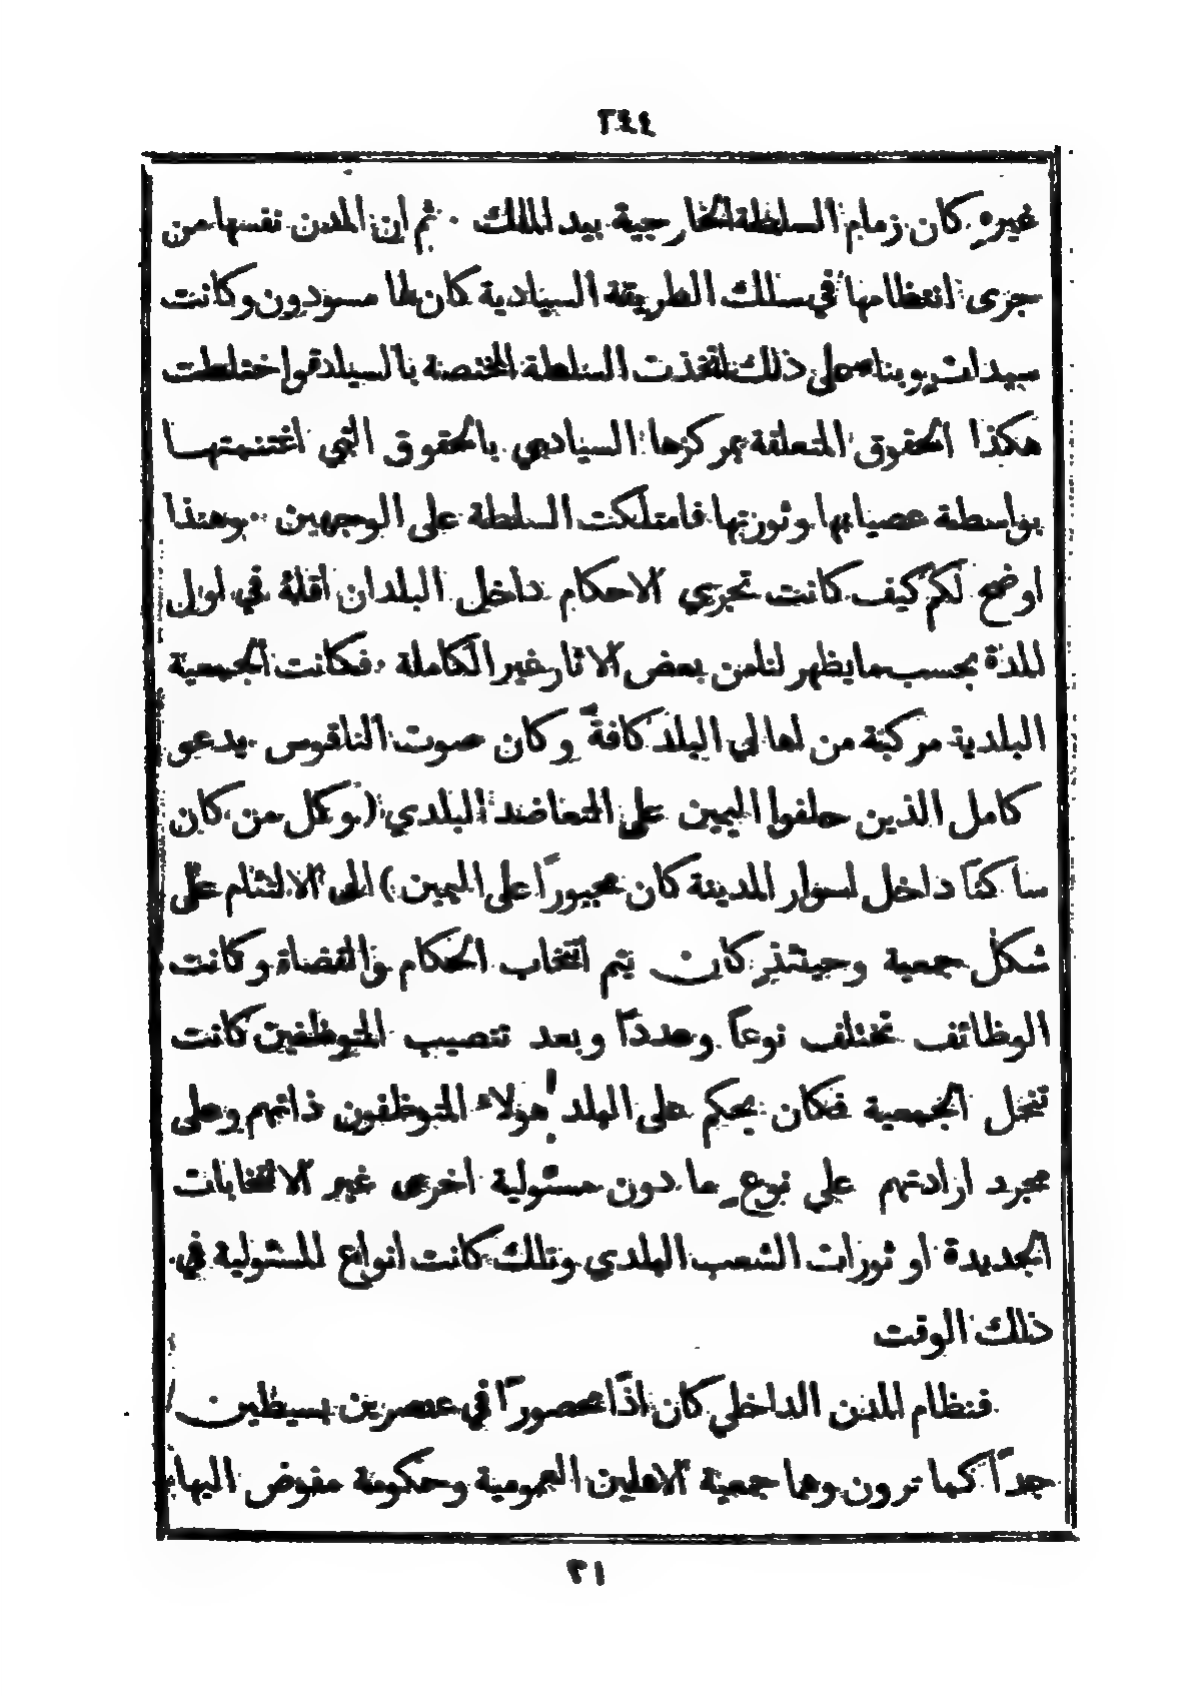 ٢٤٤
غيرهِ كان زمام السلطة الخارجية بيد الملك . ثم ان المدن نفسها من
جرى انتظامها في سلك الطريقة السيادية كان لها مسودون وكانت
سيدات وبناء على ذلك اتخذت السلطة المختصة بالسيادة واختلطت
هكذا الحقوق المتعلقة بمركزها السيادي بالحقوق التي اغتنمتهـا
بواسطة عصيانها وثورتها فامتلكت السلطة على الوجهين . وهنذا
اوضح لكم كيف كانت تجري الاحكام داخل البلدان اقلهُ في اول
المدة بحسب ما يظهر لنا من بعض الاثار غير الكاملة . فكانت الجمعية
البلدية مركبة من اهالي البلد كافةً وكان صوت الناقوس يدعو
كامل الذين حلفوا اليمين على التعاضد البلدي (وكل من كان
ساكنًا داخل اسوار المدينة كان مجبورًا على اليمين) الى الالتئام على
شكل جمعية وحينئذٍ كان يتم انتخاب الحكام والقضاة وكانت
الوظائف تختلف نوعًا وعددًا وبعد تنصيب المتوظفين كانت
تنحل الجمعية فكان يحكم على البلد هولاء المتوظفون ذاتهم وعلى
مجرد ارادتهم على نوعٍ ما دون مسئولية اخرى غير الانتخابات
الجديدة او ثورات الشعب البلدي وتلك كانت انواع المسئولية في
ذلك الوقت
فنظام المدن الداخلي كان اذًا محصورًا في عنصرين بسيطين
جدًا كما ترون وهما جمعية الاهلين العمومية وحكومة مفوض اليها
٣١